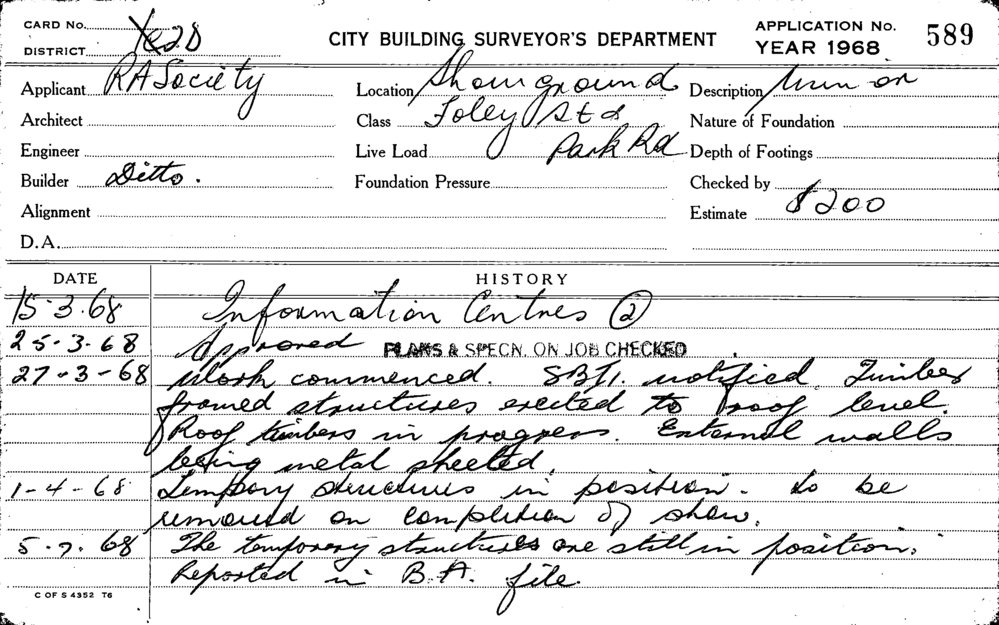 CARD No. Yes 20
DISTRICT
CITY BUILDING SURVEYOR'S DEPARTMENT
APPLICATION No. 589
YEAR 1968
Applicant RA Society
Location Showground
Description
Architect
Class Foley St &
Nature of Foundation
Engineer
Live Load Park Rd
Depth of Footings
Builder Ditto.
Foundation Pressure
Checked by
Alignment
Estimate $200
D.A.
DATE HISTORY
15-3.68 Information Centres (2)
25-3-68 Approved PLANS & SPECN. ON JOB CHECKED
27-3-68 Work commenced. notified. Timber
framed structures erected to roof level.
Roof timbers in progress. External walls
being metal sheeted.
1-4-68 structures in position. to be
removed on completion of show.
5.7.68 The temporary structures are still in position.
Reported in B.A. file.
C OF S 4352 T6